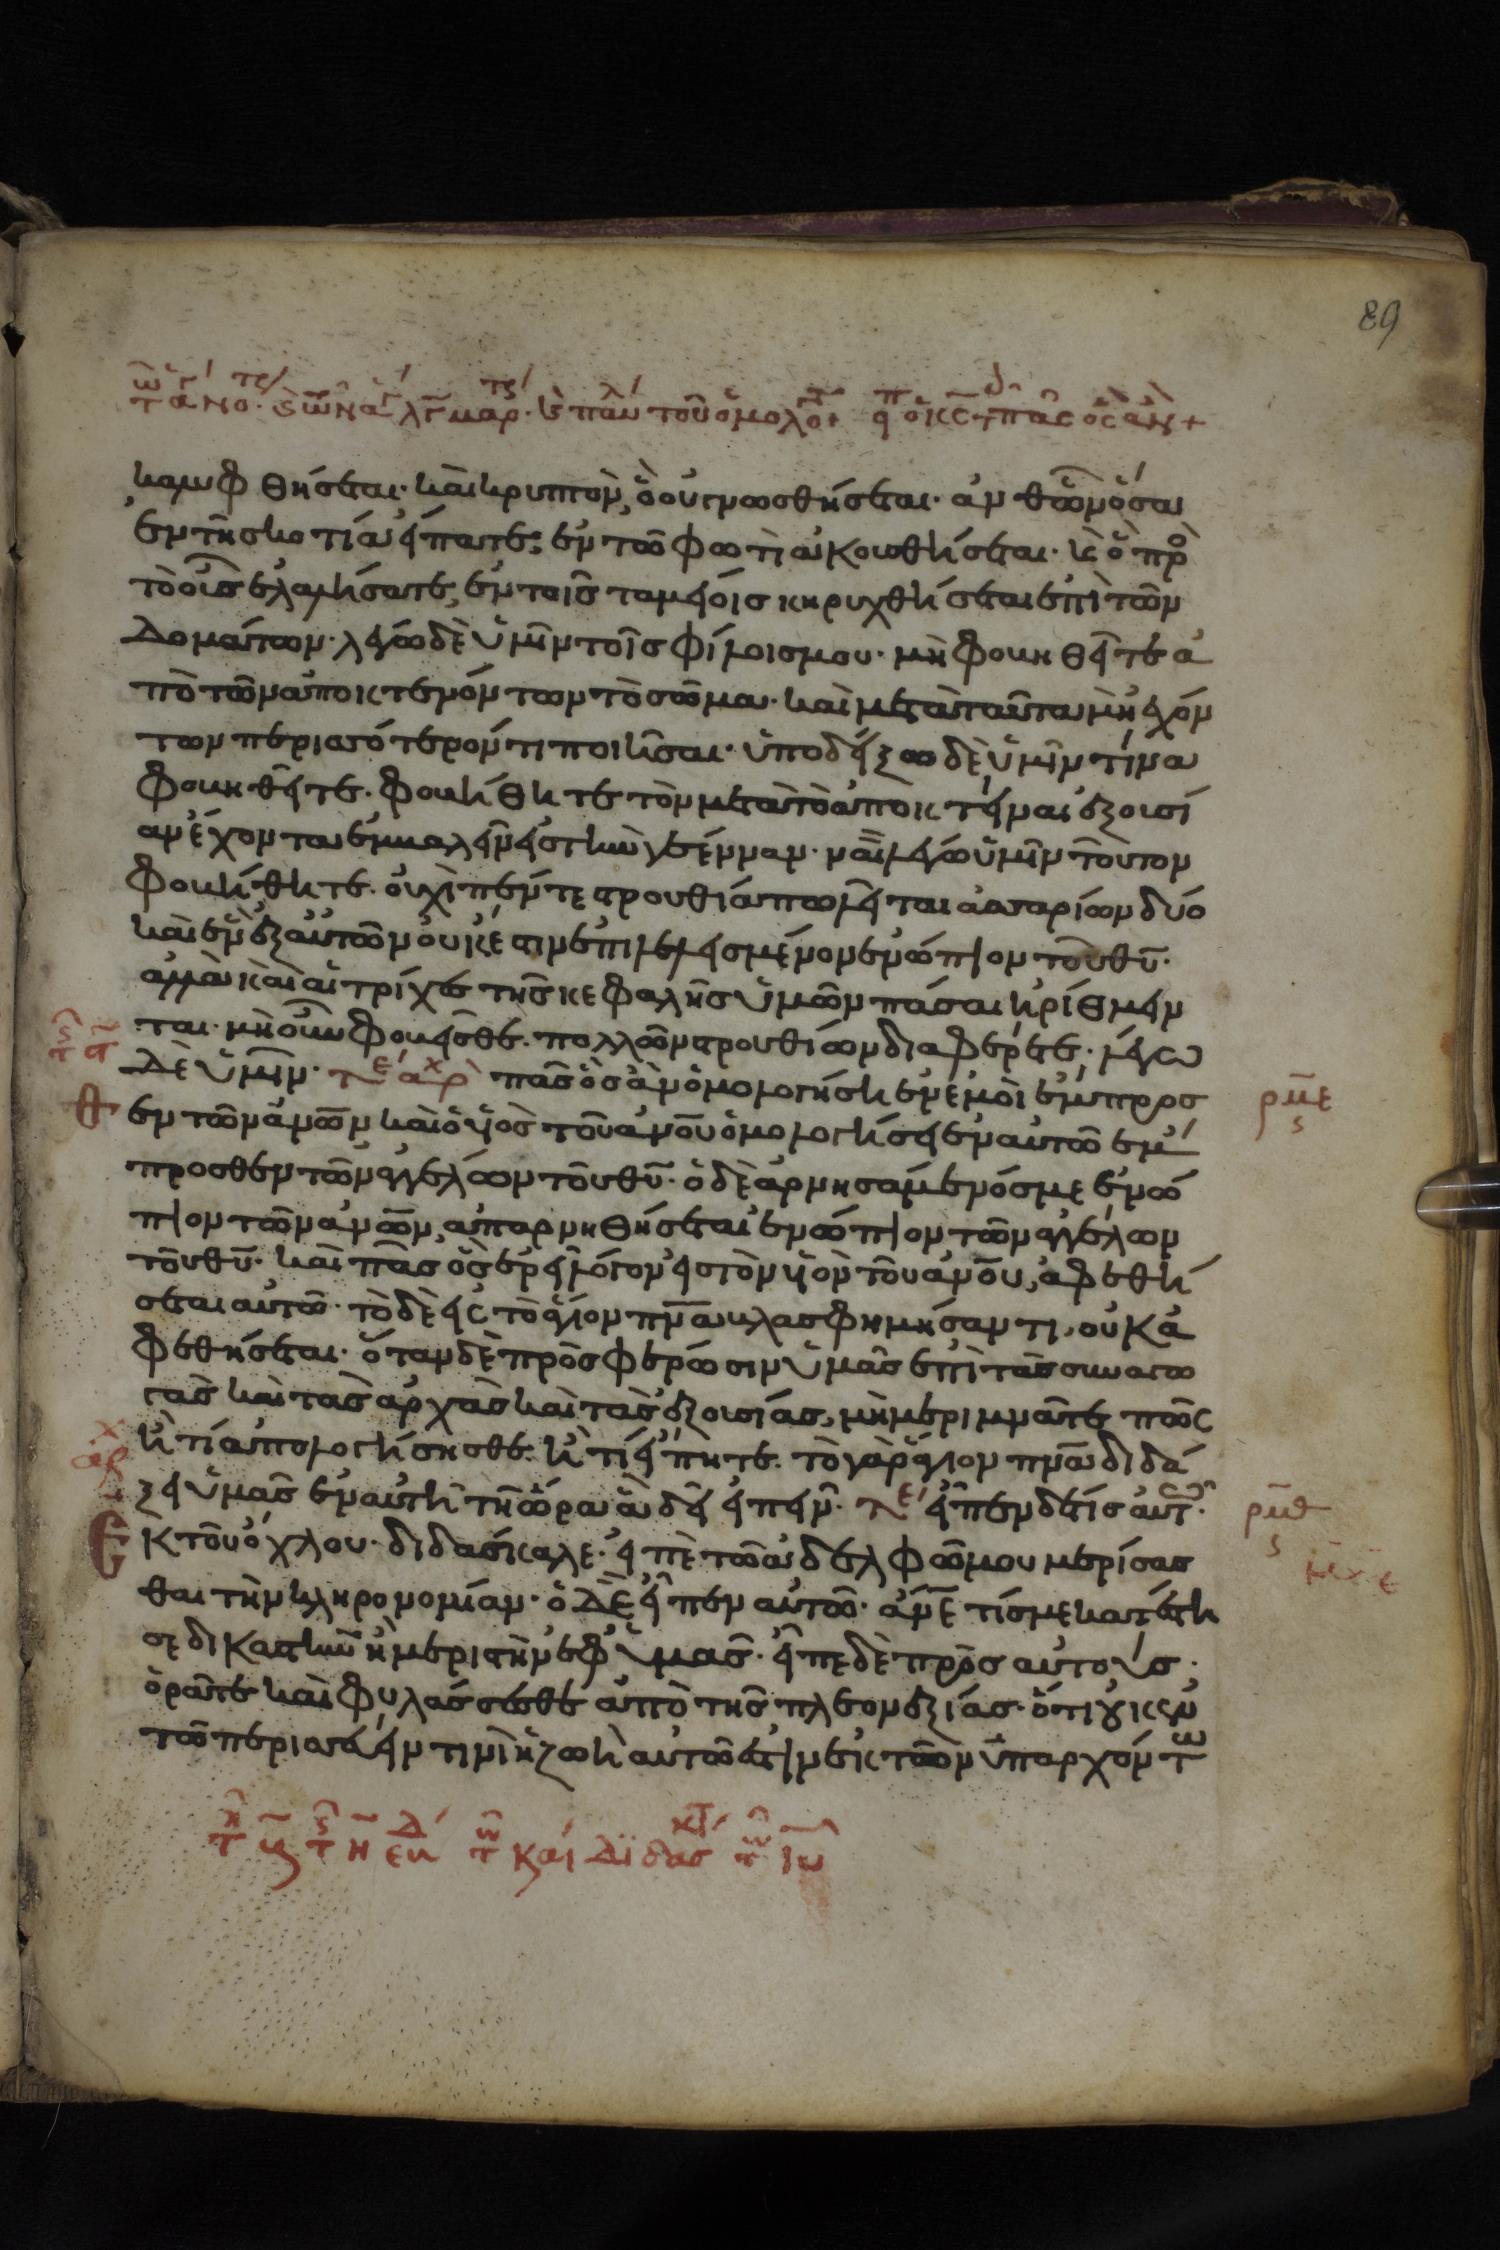 89
καλυφθήσεται· καὶ κρυπτὸν, ὃ οὐ γνωσθήσεται· ἀνθῶν ὅσα
ἐν τῆ σκοτία εἴπατε, ἐν τῶ φωτὶ ἀκουσθήσεται· κὲ ὃ πρὸ
τὸ οὖς ἐλαλήσατε, ἐν τοῖς ταμείοις κηρυχθήσεται ἐπὶ τῶν
δομάτων· λέγω δὲ ὑμῖν τοῖς φίλοις μου· μὴ φοβηθῆτε ἀ
πὸ τῶν ἀποκτενόντων τὸ σῶμα· καὶ μετὰ ταῦτα μὴ ἐχόν
των περισσότερόν τι ποιῆσαι· ὑποδείξω δὲ ὑμῖν τίνα
φοβηθῆτε· φοβήθητε τὸν μετὰ τὸ ἀποκτεῖναι ἐξουσί
αν ἔχοντα ἐμβαλεῖν εἰς τὴν γέενναν· ναὶ λέγω ὑμῖν τοῦτον
φοβήθητε· οὐχὶ πέντε στρουθία πωλεῖται ἀσσαρίων δύο
καὶ ἓν ἐξ αὐτῶν οὐκ ἔστιν ἐπιλελησμένον ἐνώπιον τοῦ θυ·
ἀλλὰ καὶ αἱ τρίχες τῆς κεφαλῆς ὑμῶν πᾶσαι ἠρίθμην
ται· μὴ οὖν φοβεῖσθε· πολλῶν στρουθίων διαφέρετε· λέγω
δὲ ὑμῖν· πᾶς ὃς ἂν ὁμολογήση ἐν ἐμοὶ ἔμπροσ
θεν τῶν ἀνων καὶ ὁ υἱὸς τοῦ ἀνου ὁμολογήσει ἐν αὐτῶ ἔμ
προσθεν τῶν ἀγγέλων τοῦ θυ· ὁ δὲ ἀρνησάμενός με ἐνώ
πιον τῶν ἀνων, ἀπαρνηθήσεται ἐνώπιον τῶν ἀγγέλων
τοῦ θυ· καὶ πᾶς ὃς ἐρεῖ λόγον εἰς τὸν υἱὸν τοῦ ἀνου, ἀφεθή
σεται αὐτῶ· τὸ δὲ εἰς τὸ ἅγιον πνα βλασφημήσαντι, οὐκ ἀ
φεθήσεται· ὅταν δὲ προσφέρωσιν ὑμᾶς ἐπὶ τὰς συναγω
γὰς καὶ τὰς ἀρχὰς καὶ τὰς ἐξουσίας, μὴ μεριμνᾶτε πῶς
ἢ τί ἀπολογήσησθε· ἢ τί εἴπητε· τὸ γὰρ ἅγιον πνα διδά
ξει ὑμᾶς ἐν αὐτῆ τῆ ὥρα ἃ δεῖ εἰπεῖν· εἶπεν δέ τις αὐτ
ἐκ τοῦ ὄχλου· διδάσκαλε· εἰπὲ τῶ ἀδελφῶ μου μερίσασ
θαι τὴν κληρονομίαν· ὁ δὲ εἶπεν αὐτῶ· ἄνε τίς με κατέστη
σε δικαστὴν ἢ μεριστὴν ἐφ ὑμᾶς· εἶπε δὲ πρὸς αὐτούς·
ὁρᾶτε καὶ φυλάσσεσθε ἀπὸ τῆς πλεονεξίας· ὅτι οὐκ ἐν
τῶ περισσεύειν τινὶ ἡ ζωὴ αὐτῶ ἐστὶν ἐκ τῶν ὑπαρχόντ